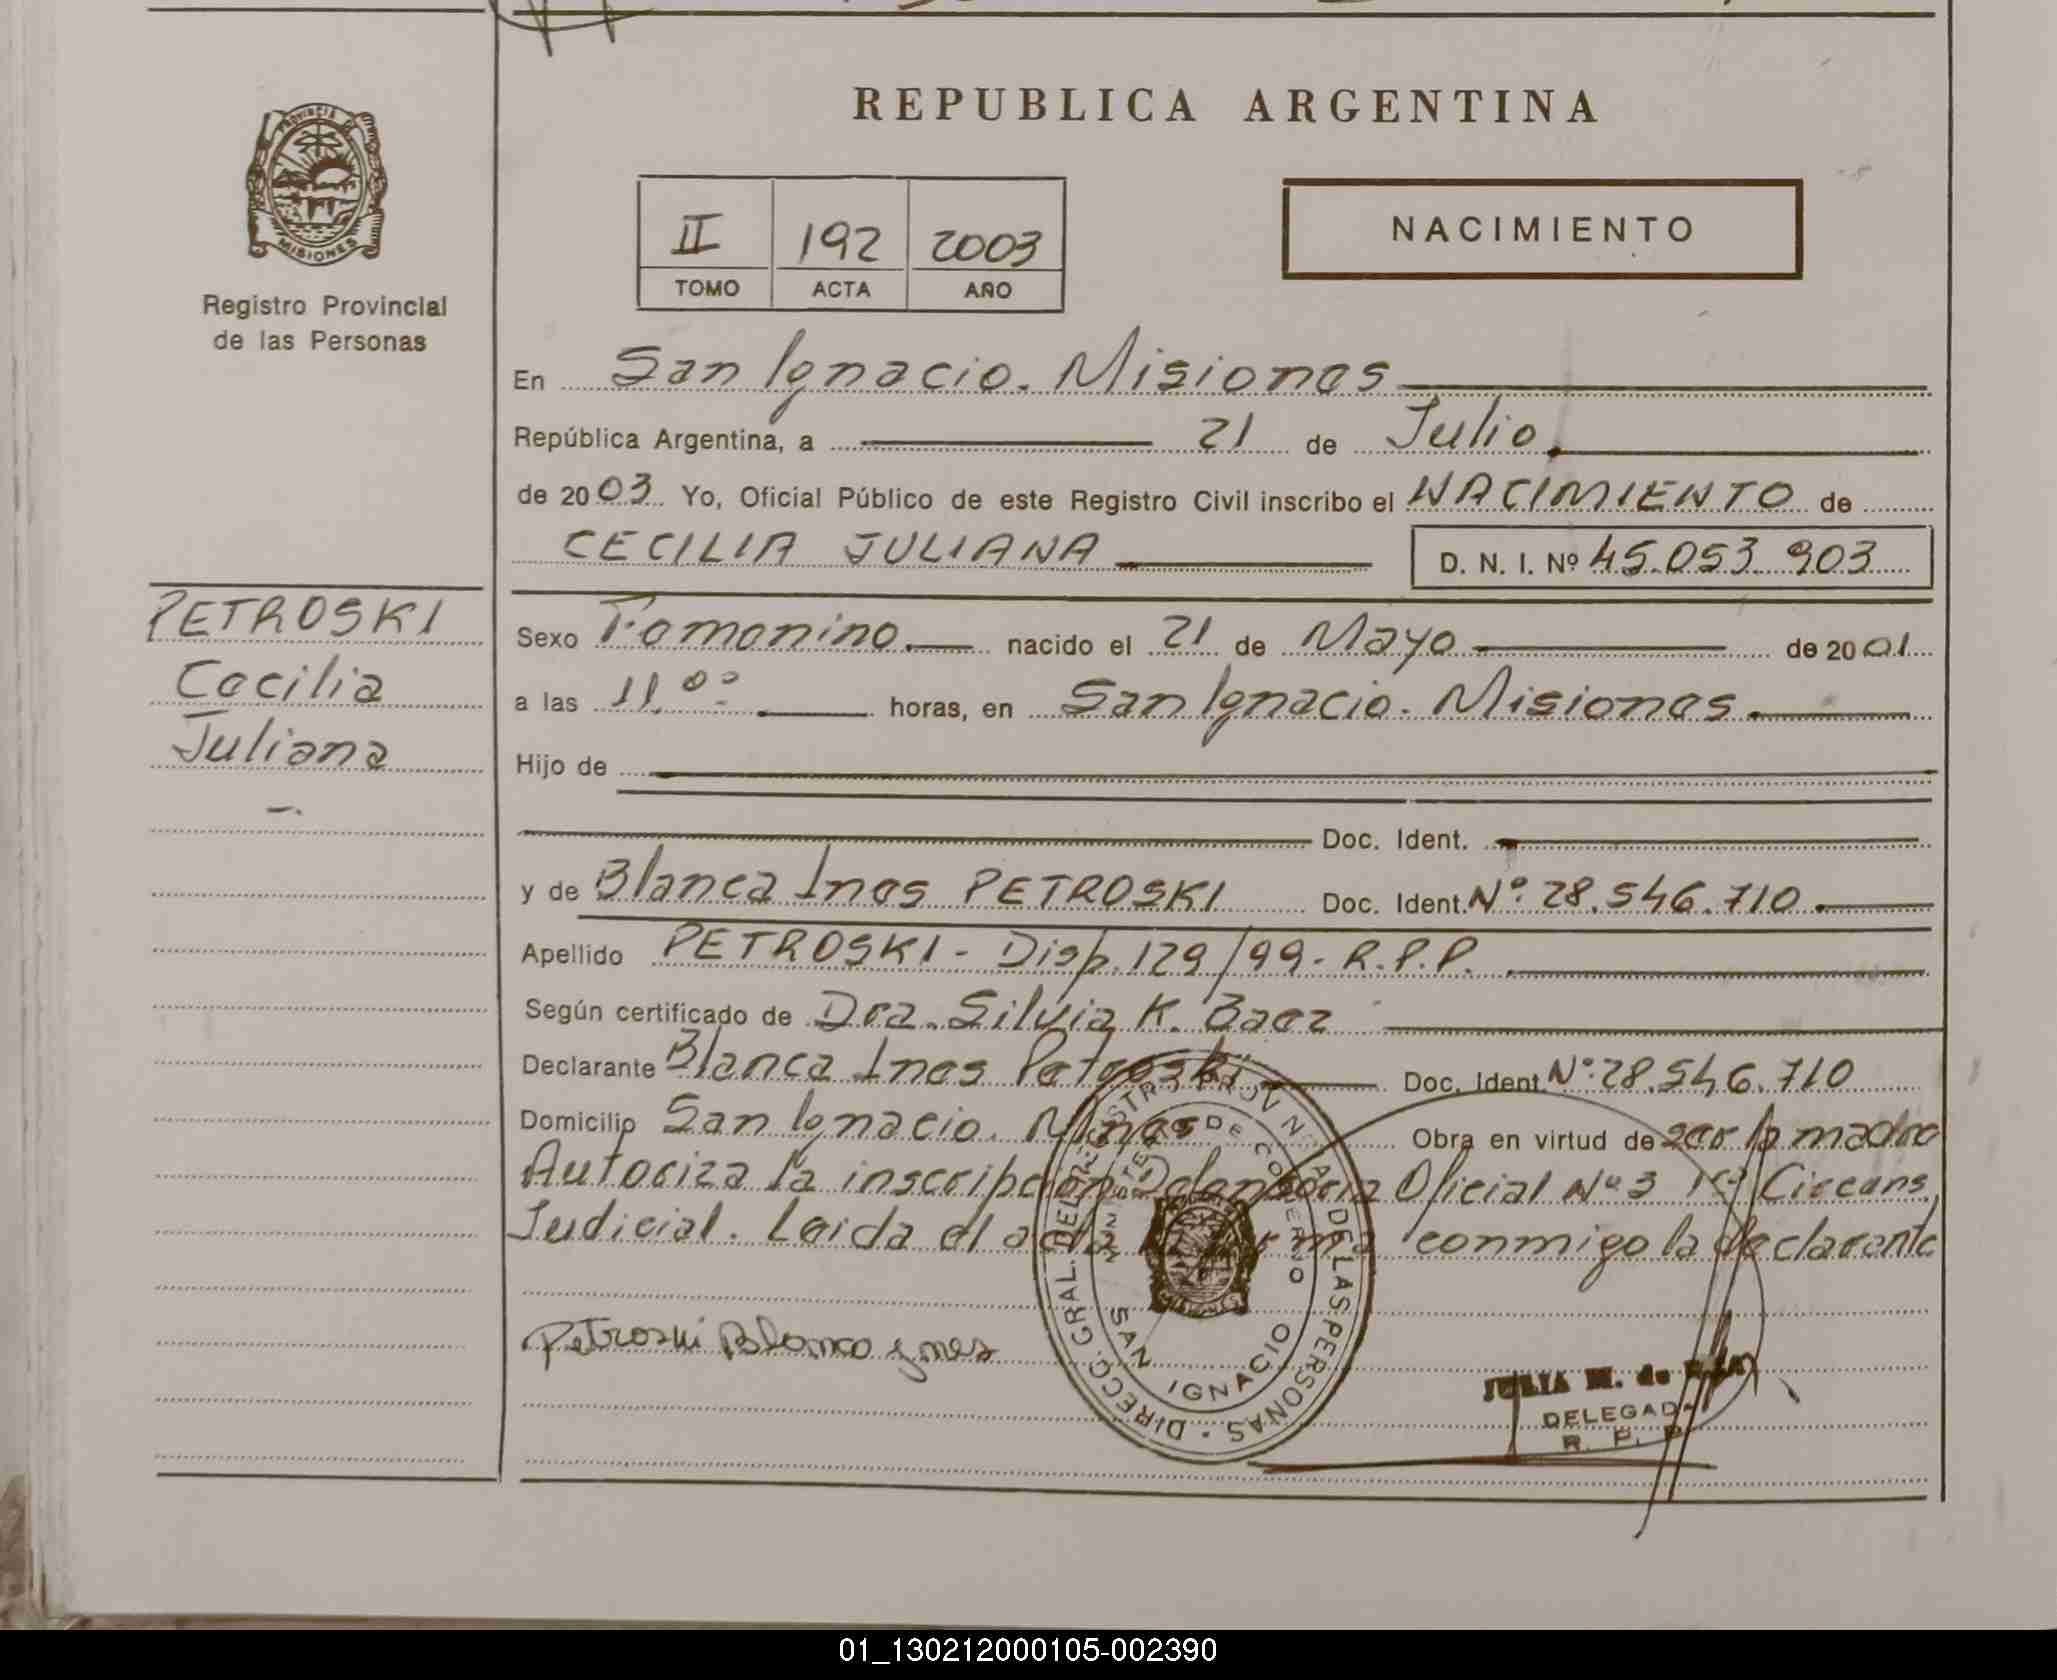 REPUBLICA ARGENTINA
PROVINCIA DE
MISIONES
Registro Provincial
de las Personas
II 192 2003
TOMO ACTA AÑO
NACIMIENTO
En San Ignacio. Misiones
República Argentina, a 21 de Julio.
de 2003 Yo, Oficial Público de este Registro Civil inscribo el NACIMIENTO de
CECILIA JULIANA D. N. I. Nº 45.053.903
PETROSKI
Cecilia
Juliana
Sexo Femenino. nacido el 21 de Mayo de 2001
a las 11.00 horas, en San Ignacio. Misiones.
Hijo de
Doc. Ident.
y de Blanca Ines PETROSKI Doc. Ident. Nº 28.546.710.
Apellido PETROSKI - Disp. 129/99 - R.P.P.
Según certificado de Dra. Silvia K. Baez
Declarante Blanca Ines Petroski Doc. Ident Nº 28.546.710
Domicilio San Ignacio. Mnes Obra en virtud de ser la madre
Autoriza la inscripción Defensoría Oficial Nº 3 Circuns.
Judicial. Leida el acta conmigo la declarante
Petroski Blanca ynes
DIRECC. GRAL. DEL REGISTRO PROV. DE LAS PERSONAS
MINISTERIO DE GOBIERNO
SAN IGNACIO
MISIONES
JULIA M. de
DELEGADA
R. P. P.
01_130212000105-002390